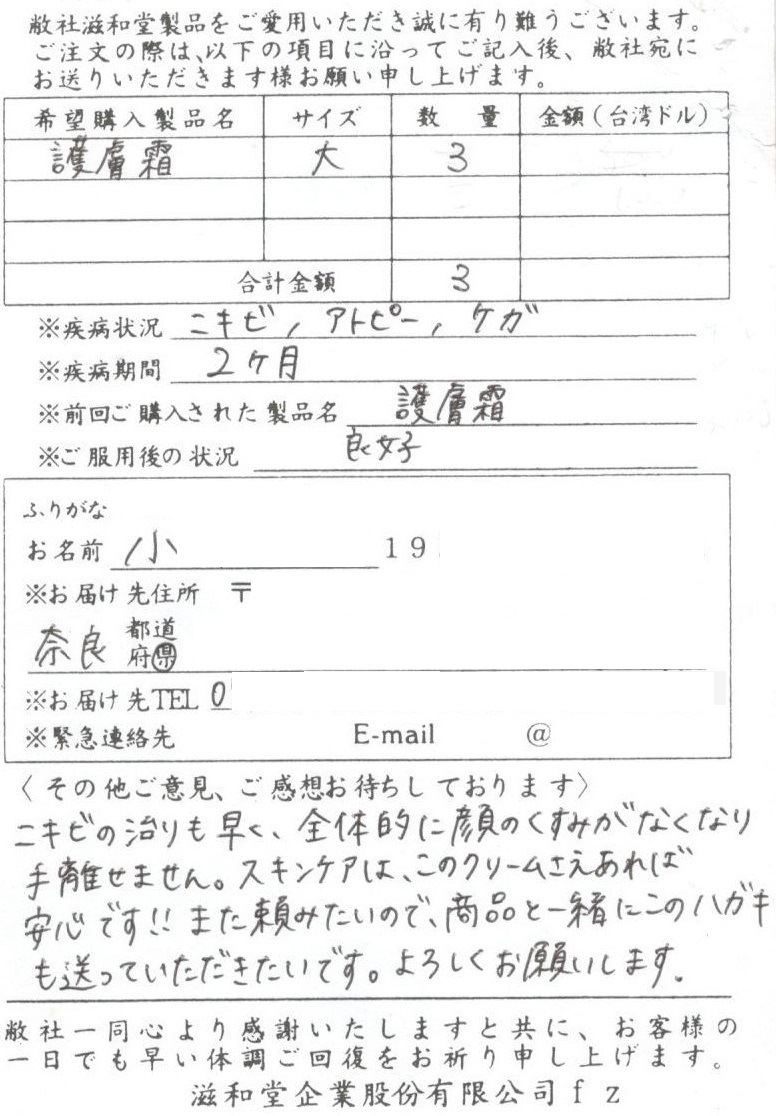 敝社滋和堂製品をご愛用いただき誠に有り難うございます。
ご注文の際は、以下の項目に沿ってご記入後、敝社宛に
お送りいただきます様お願い申し上げます。
希望購入製品名 サイズ 数量 金額(台湾ドル)
護膚霜 大 3
合計金額 3
※疾病状況 ニキビ, アトピー, ケガ
※疾病期間 2ケ月
※前回ご購入された製品名 護膚霜
※ご服用後の状況 良好
ふりがな
お名前 小 19
※お届け先住所 〒
奈良 都道府県
※お届け先TEL 0
※緊急連絡先 E-mail @
〈その他ご意見、ご感想お待ちしております〉
ニキビの治りも早く、全体的に顔のくすみがなくなり
手離せません。スキンケアは、このクリームさえあれば
安心です!!また頼みたいので、商品と一緒にこのハガキ
も送っていただきたいです。よろしくお願いします.
敝社一同心より感謝いたしますと共に、お客様の
一日でも早い体調ご回復をお祈り申し上げます。
滋和堂企業股份有限公司fz